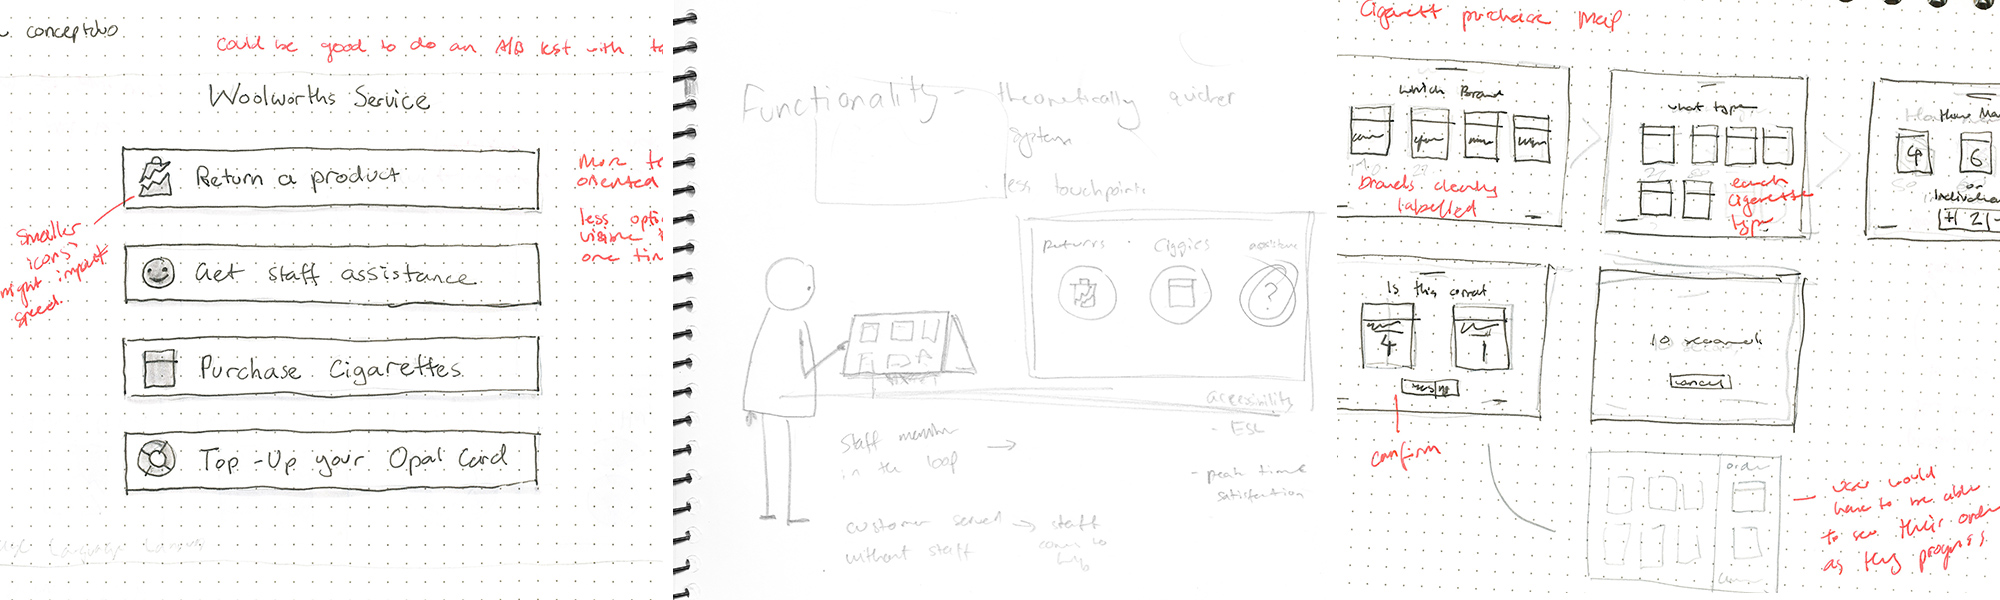 conceptdio
could be good to do an A/B test with ta
Woolworths Service
Return a product
Get staff assistance
Purchase Cigarettes
Top-Up your Opal Card
Smaller
icons
might impact
speed.
More te
oriented
less opti
visible
one tim
Functionality - theoretically quicker
system
less touchpoints
Returns
Ciggies
assistance
?
accessibility
- ESL
- peak time
satisfaction
Staff member
in the loop
customer served
without staff
staff
comes to
help
Cigarett purchase Map
which Brand
Brands clearly
labelled
what type
each
cigarette
type
How Ma
4
6
or
Individua
+ 2 -
Is this correct
4
1
confirm
10 seconds
cancel
order
user would
have to be able
to see their order
as they progress